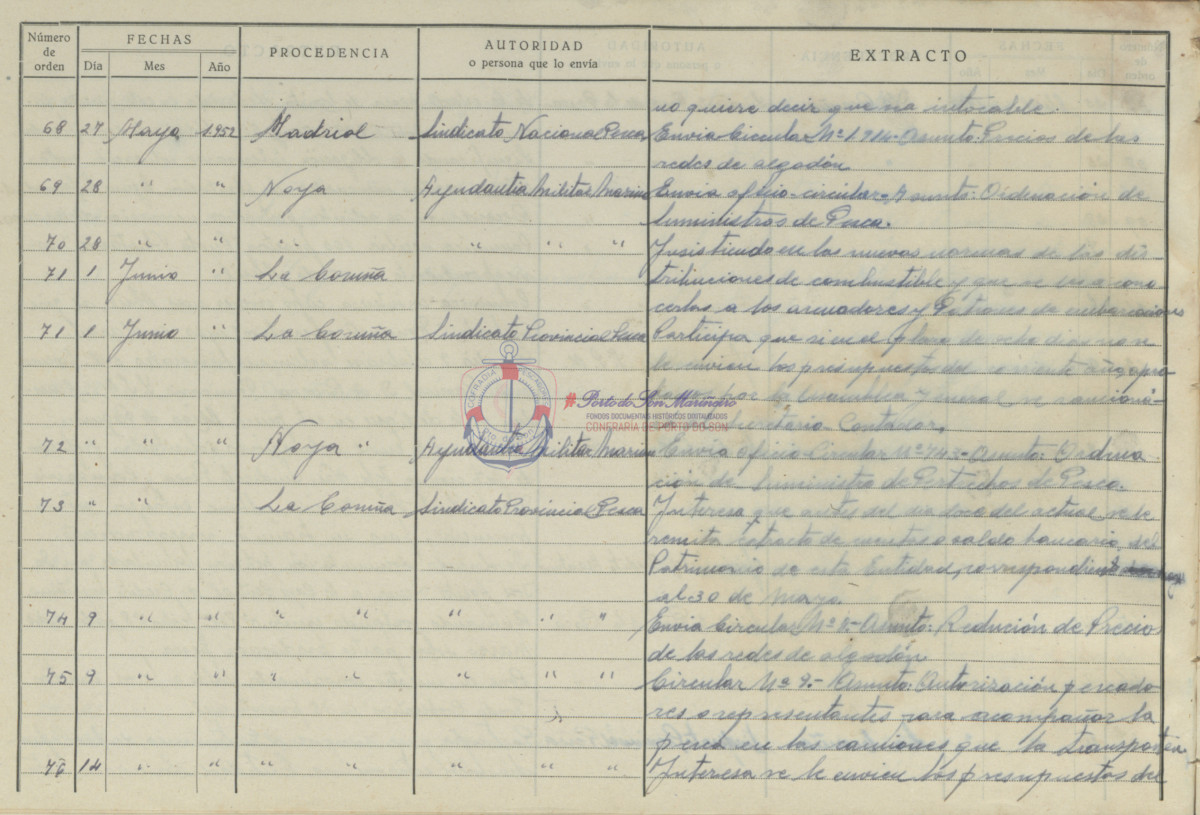 Número de orden FECHAS Día Mes Año PROCEDENCIA AUTORIDAD o persona que lo envía EXTRACTO
no quiere decir que sea intocable.
68 27 Mayo 1.952 Madrid Sindicato Nacional Pesca, Envia Circular Nº 1.914- Asunto: Precios de las
redes de algodón
69 28 " " Noya Ayudantia Militar Marina Envia oficio-circular- Asunto: Ordenación de
Suministros de Pesca.
70 28 " " " " " " " Insistiendo en las nuevas normas de las dis-
71 1 Junio " La Coruña tribuciones de combustible y que se
a los armadores y Patrones de embarcaciones
71 1 Junio " La Coruña Sindicato Provincial Pesca Participa que si en el plazo de ocho dias no se
le envien los presupuestos del corriente año apro
por la Asamblea General se sanciona-
Secretario- Contador.
72 " " " Noya " Ayudantia Militar Marina Envia Oficio-Circular Nº 743- Asunto: Ordena
ción de Suministro de Pertrechos de Pesca.
73 " " La Coruña Sindicato Provincial Pesca Interesa que antes del dia doce del actual se le
remita extracto de cuentas o saldo bancario, del
Patrimonio de esta Entidad, correspondiente
al 30 de Mayo.
74 9 " " " " " " " Envia Circular Nº 8- Asunto: Redución de Precio
de las redes de algodón
75 9 " " " " " " " Circular Nº 9.- Asunto: Autorización pescado-
res o representantes para acompañar la
pesca en los camiones que la transporten
76 14 " " " " " " " Interesa se le envien los presupuestos del
COFRADIA
#Porto do Son Mariñeiro
FONDOS DOCUMENTAIS HISTÓRICOS DIXITALIZADOS
CONFRARÍA DE PORTO DO SON